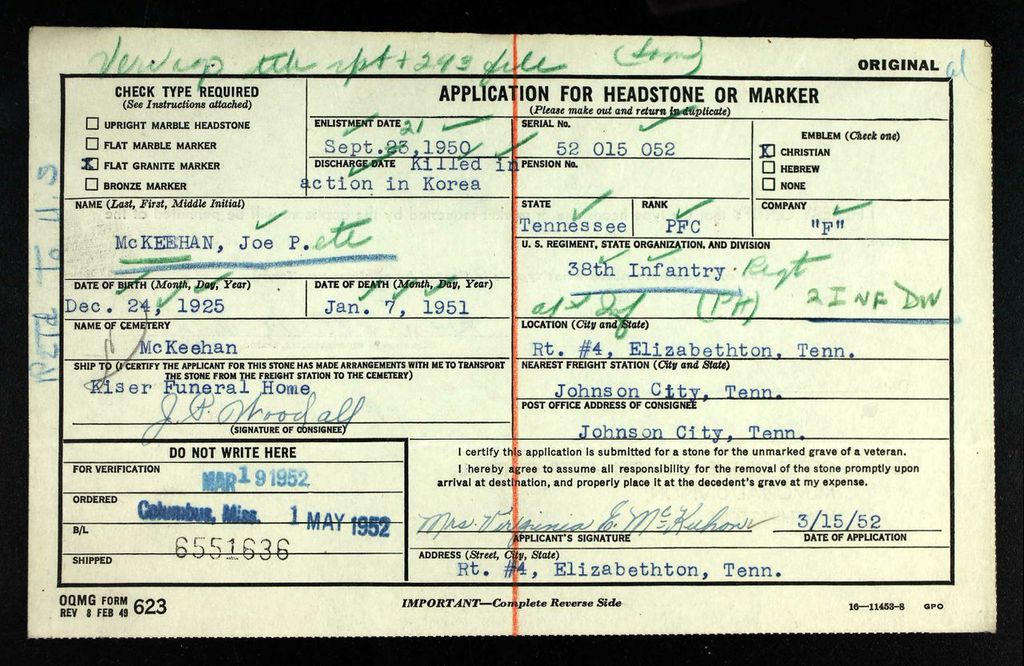 rpt + 293 file
ORIGINAL al
CHECK TYPE REQUIRED
(See Instructions attached)
UPRIGHT MARBLE HEADSTONE
FLAT MARBLE MARKER
X FLAT GRANITE MARKER
BRONZE MARKER
APPLICATION FOR HEADSTONE OR MARKER
(Please make out and return in duplicate)
ENLISTMENT DATE 21
Sept.23,1950
SERIAL No.
52 015 052
EMBLEM (Check one)
X CHRISTIAN
HEBREW
NONE
DISCHARGE DATE Killed in
action in Korea
PENSION No.
NAME (Last, First, Middle Initial)
McKEEHAN, Joe P.ete
STATE
Tennessee
RANK
PFC
COMPANY
"F"
U. S. REGIMENT, STATE ORGANIZATION, AND DIVISION
38th Infantry Regt
(PH) 2 INF DIV
DATE OF BIRTH (Month, Day, Year)
Dec. 24, 1925
DATE OF DEATH (Month, Day, Year)
Jan. 7, 1951
NAME OF CEMETERY
McKeehan
LOCATION (City and State)
Rt. #4, Elizabethton, Tenn.
SHIP TO (I CERTIFY THE APPLICANT FOR THIS STONE HAS MADE ARRANGEMENTS WITH ME TO TRANSPORT
THE STONE FROM THE FREIGHT STATION TO THE CEMETERY)
Kiser Funeral Home
J. P. Woodall
(SIGNATURE OF CONSIGNEE)
NEAREST FREIGHT STATION (City and State)
Johnson City, Tenn.
POST OFFICE ADDRESS OF CONSIGNEE
Johnson City, Tenn.
DO NOT WRITE HERE
FOR VERIFICATION
MAR 19 1952
ORDERED
Columbus, Miss. 1 MAY 1952
B/L
6551636
SHIPPED
I certify this application is submitted for a stone for the unmarked grave of a veteran.
I hereby agree to assume all responsibility for the removal of the stone promptly upon
arrival at destination, and properly place it at the decedent's grave at my expense.
Mrs. Virginia E. McKeehan 3/15/52
APPLICANT'S SIGNATURE DATE OF APPLICATION
ADDRESS (Street, City, State)
Rt. #4, Elizabethton, Tenn.
OQMG FORM
REV 8 FEB 49 623
IMPORTANT—Complete Reverse Side
16—11453-8 GPO
RETD TO U.S